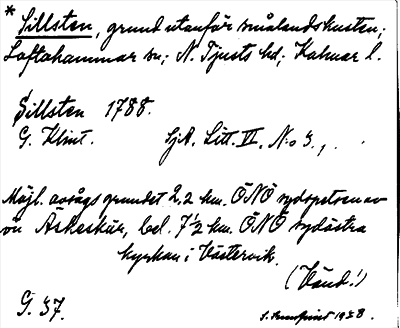 * Sillsten, grund utanför smålandskusten;
Loftahammar sn; N. Tjusts hd; Kalmar l.
Sillsten 1788.
G. Klint. SjA. Litt. VI. N:o 3.,
Möjl. avsågs grundet 2,2 km. ÖNÖ sydspetsen av
ön Äskeskär, bel. 7½ km. ÖNÖ sydöstra
kyrkan i Västervik.
(Vänd!)
G. 37. 1938.